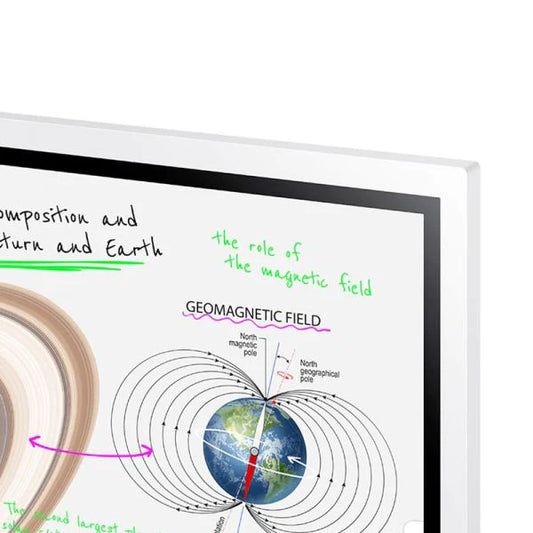 omposition and
turn and Earth
the role of
the magnetic field
GEOMAGNETIC FIELD
North
magnetic
pole
North
geographical
pole
The second largest